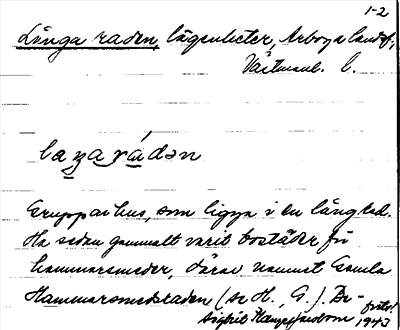 1-2
Långa raden, lägenheter, Arboga landsf.,
Västmanl. l.
laŋaṛádən
Grupp av hus, som ligga i en lång rad.
Ha sedan gammalt varit bostäder för
hammarsmeder, därav namnet Gamla
Hammarsmedsraden (se H., G.). Be-
Sigbrit 1943